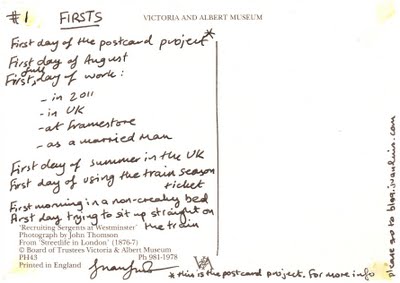 #1 FIRSTS
VICTORIA AND ALBERT MUSEUM
First day of the postcard project*
First day of August
First full day of work:
- in 2011
- in UK
- at Framestore
- as a married man
First day of summer in the UK
First day of using the train season
ticket
First morning in a non-creaky bed
First day trying to sit up straight on
the train
'Recruiting Sergents at Westminster'
Photograph by John Thomson
From 'Streetlife in London' (1876-7)
© Board of Trustees Victoria & Albert Museum
PH43 Ph 981-1978
Printed in England
* this is the postcard project. For more info
please go to blog.